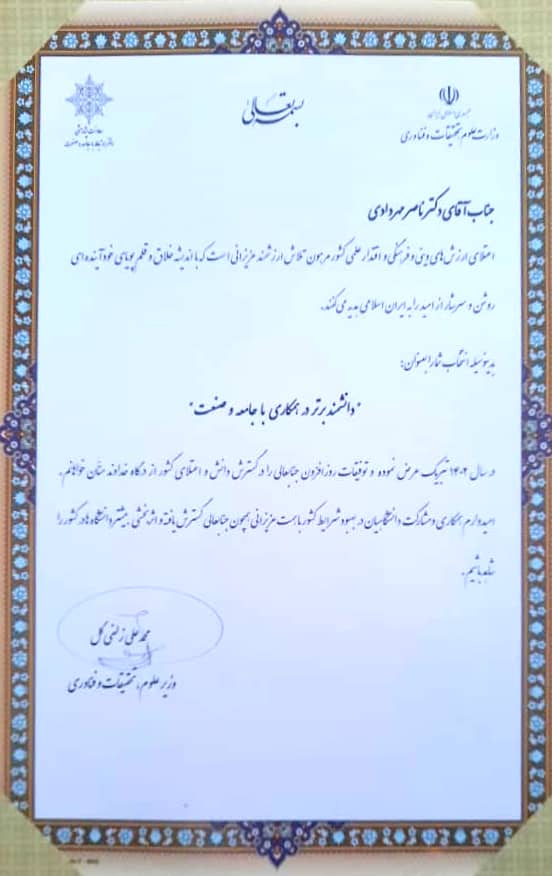 بسمه تعالی
جمهوری اسلامی ایران
وزارت علوم، تحقیقات و فناوری
معاونت پژوهشی
دفتر ارتباط با جامعه و صنعت
جناب آقای دکتر ناصر مهردادی
اعتلای ارزش‌های دینی و فرهنگی و اقتدار علمی کشور مرهون تلاش ارزشمند عزیزانی است که با اندیشه خلاق و قلم پویای خود آینده‌ای
روشن و سرشار از امید را به ایران اسلامی هدیه می‌کنند.
بدینوسیله انتخاب شما را بعنوان:
"دانشمند برتر در همکاری با جامعه و صنعت"
در سال ۱۴۰۲ تبریک عرض نموده و توفیقات روزافزون جنابعالی را در گسترش دانش و اعتلای کشور از درگاه خداوند منان خواهانم.
امیدوارم همکاری و مشارکت دانشگاهیان در بهبود شرایط کشور با همت عزیزانی همچون جنابعالی گسترش یافته و اثربخشی بیشتر دانشگاه‌ها در کشور را
شاهد باشیم.
محمد علی زلفی گل
وزیر علوم، تحقیقات و فناوری